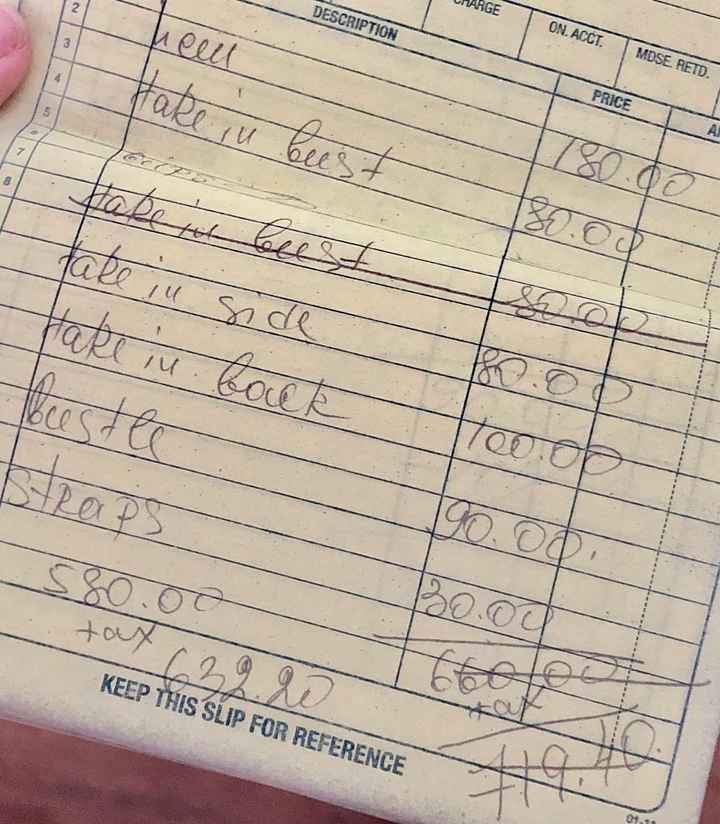 CHARGE ON. ACCT. MDSE. RETD.
DESCRIPTION PRICE
2
3 hem 180.00
4 take in bust 80.00
5
7
8 take in bust 80.00
take in side 80.00
take in back 100.00
bustle 90.00.
straps 30.00
580.00 660.00
tax tax
632.20 719.40.
KEEP THIS SLIP FOR REFERENCE